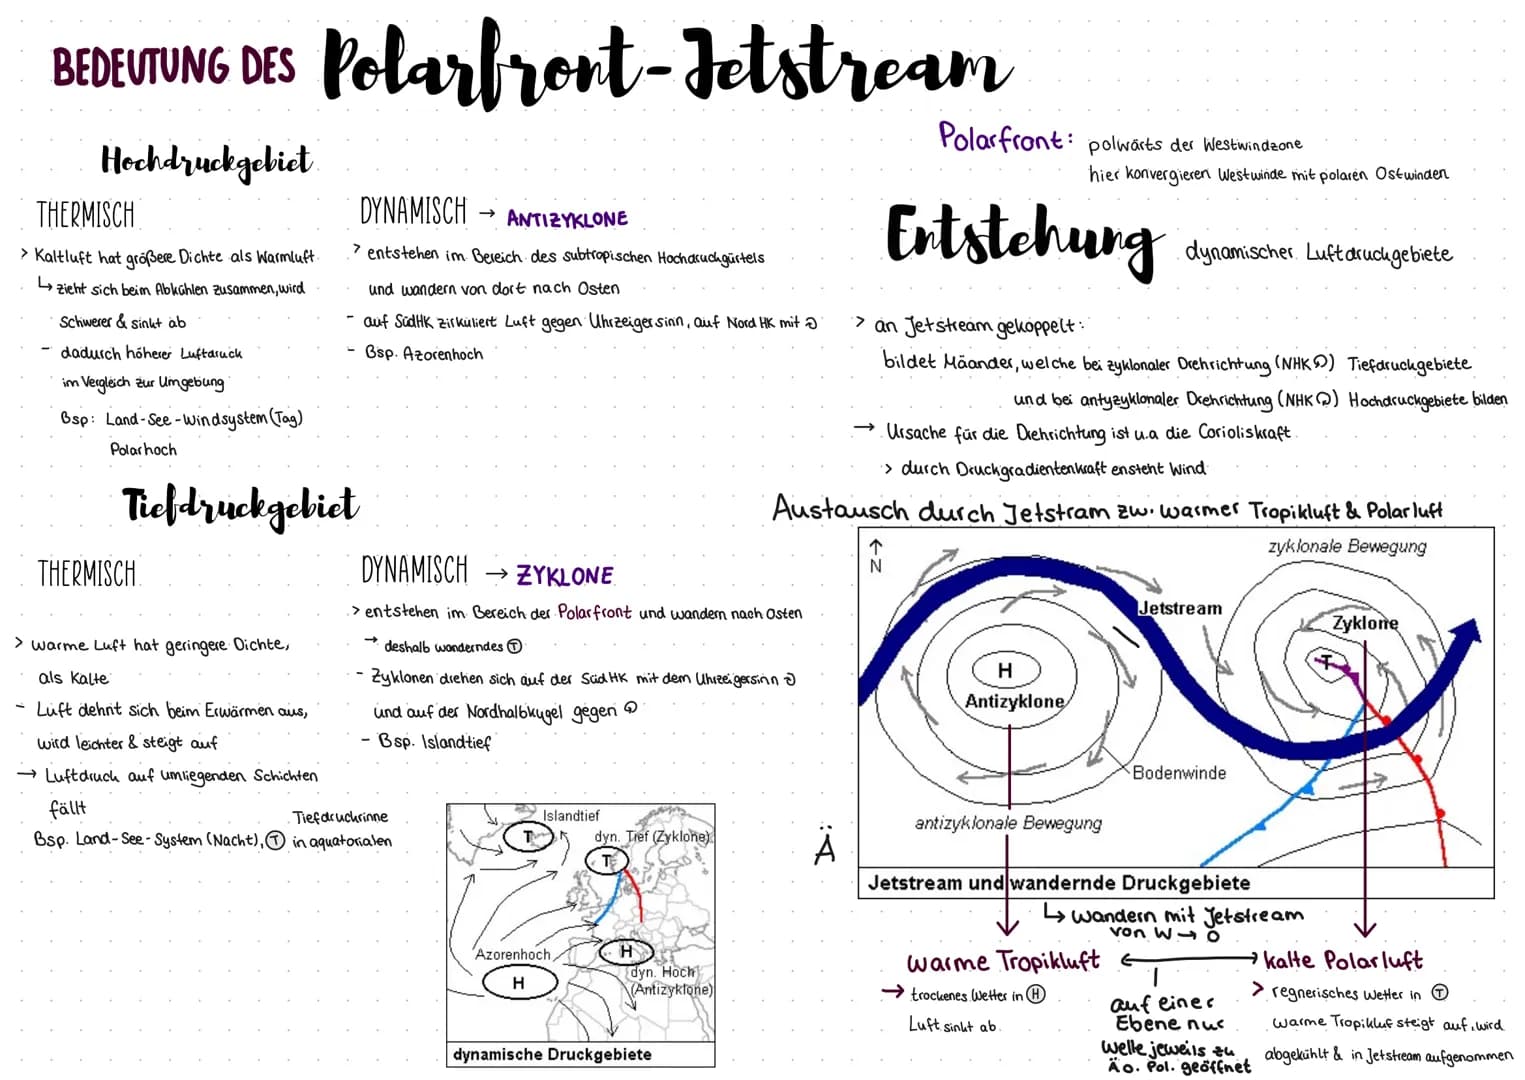 BEDEUTUNG DES Polarfront-Jetstream
Hochdruckgebiet
THERMISCH
> Kaltluft hat größere Dichte als Warmluft
↳ zieht sich beim Abkühlen zusammen, wird
schwerer & sinkt ab
- dadurch höherer Luftdruck
im Vergleich zur Umgebung
Bsp: Land-See-Windsystem (Tag)
Polarhoch
DYNAMISCH → ANTIZYKLONE
> entstehen im Bereich des subtropischen Hochdruckgürtels
und wandern von dort nach Osten
- auf SüdHK zirkuliert Luft gegen Uhrzeigersinn, auf Nord HK mit ↻
- Bsp. Azorenhoch
Tiefdruckgebiet
THERMISCH
> warme Luft hat geringere Dichte,
als Kalte
- Luft dehnt sich beim Erwärmen aus,
wird leichter & steigt auf
→ Luftdruck auf umliegenden Schichten
fällt
Tiefdruckrinne
Bsp. Land-See-System (Nacht), Ⓣ in aquatorialen
DYNAMISCH → ZYKLONE
> entstehen im Bereich der Polarfront und wandern nach Osten
→ deshalb wanderndes Ⓣ
- Zyklonen drehen sich auf der SüdHK mit dem Uhrzeigersinn ↻
und auf der Nordhalbkugel gegen ↺
- Bsp. Islandtief
Islandtief
T
dyn. Tief (Zyklone)
T
Azorenhoch
H
H
dyn. Hoch
(Antizyklone)
dynamische Druckgebiete
Polarfront: polwärts der Westwindzone
hier konvergieren Westwinde mit polaren Ostwinden
Entstehung dynamischer Luftdruckgebiete
> an Jetstream gekoppelt:
bildet Mäander, welche bei zyklonaler Drehrichtung (NHK ↺) Tiefdruckgebiete
und bei antyzyklonaler Drehrichtung (NHK ↻) Hochdruckgebiete bilden
→ Ursache für die Drehrichtung ist u.a die Corioliskraft
> durch Druckgradientenkraft ensteht Wind
Austausch durch Jetstram zw. warmer Tropikluft & Polarluft
↑
N
zyklonale Bewegung
Jetstream
Zyklone
H
T
Antizyklone
Bodenwinde
antizyklonale Bewegung
Ä
Jetstream und wandernde Druckgebiete
↳ wandern mit Jetstream
von W → O
warme Tropikluft ↔ kalte Polarluft
→ trockenes Wetter in Ⓗ
Luft sinkt ab
auf einer
Ebene nur
Welle jeweils zu
Ä o. Pol. geöffnet
> regnerisches Wetter in Ⓣ
warme Tropikluf steigt auf, wird
abgekühlt & in Jetstream aufgenommen